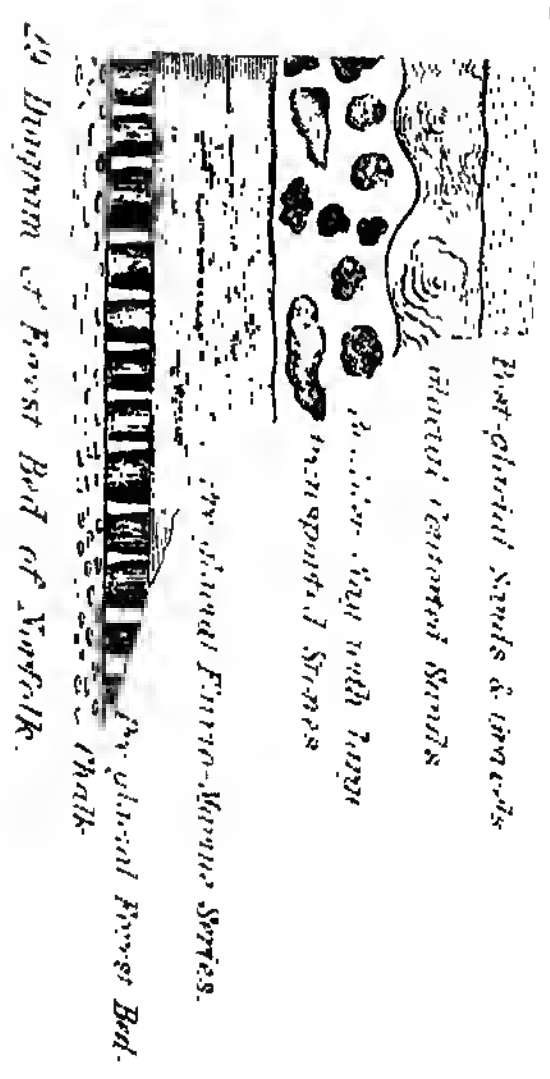 Post-glacial Sands & Gravels
Glacial Contorted Sands
Boulder Clay with large
transported Stones
Pre-glacial Fluvio-Marine Series.
Pre-glacial Forest Bed.
Chalk
Diagram of Forest Bed of Norfolk.